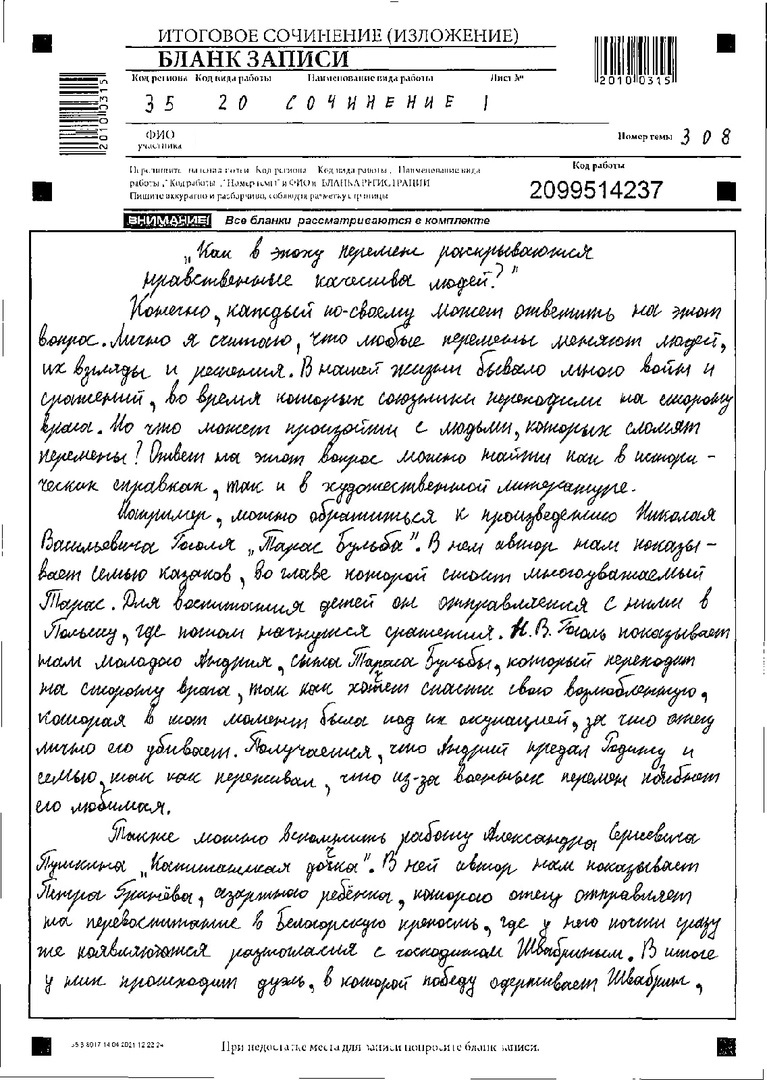 ИТОГОВОЕ СОЧИНЕНИЕ (ИЗЛОЖЕНИЕ)
БЛАНК ЗАПИСИ
Код региона Код вида работы Наименование вида работы Лист №
35 20 СОЧИНЕНИЕ 1
2010 0315
2010 0315
ФИО участника
Номер темы 308
Перепишите Код региона, Код вида работы, Наименование вида
работы, Код работы, Номер темы и ФИО из БЛАНКА РЕГИСТРАЦИИ
Пишите аккуратно и разборчиво, соблюдая разметку страницы
Код работы
2099514237
ВНИМАНИЕ! Все бланки рассматриваются в комплекте
„Как в эпоху перемен раскрываются
нравственные качества людей?"
Конечно, каждый по-своему может ответить на этот
вопрос. Лично я считаю, что любые перемены меняют людей,
их взгляды и решения. В нашей жизни бывало много войн и
сражений, во время которых союзники переходили на сторону
врага. Но что может произойти с людьми, которых сломят
перемены? Ответ на этот вопрос можно найти как в истори-
ческих справках, так и в художественной литературе.
Например, можно обратиться к произведению Николая
Васильевича Гоголя „Тарас Бульба". В нем автор нам показы-
вает семью казаков, во главе которой стоит многоуважаемый
Тарас. Для воспитания детей он отправляется с ними в
Польшу, где потом начнутся сражения. Н.В. Гоголь показывает
нам молодого Андрия, сына Тараса Бульбы, который переходит
на сторону врага, так как хотет спасти свою возлюбленную,
которая в тот момент была под их окупацией, за что отец
лично его убивает. Получается, что Андрий предал Родину и
семью, так как переживал, что из-за военных перемен погибнет
его любимая.
Также можно вспомнить работу Александра Сергеевича
Пушкина „Капитанская дочка". В ней автор нам показывает
Петра Гринёва, азартного ребёнка, которого отец отправляет
на перевоспитание в Белогорскую крепость, где у него почти сразу
же появляются разногласия с господином Швабриным. В итоге
у них происходит дуэль, в которой победу одерживает Швабрин,
При недостатке места для записи попросите бланк записи.